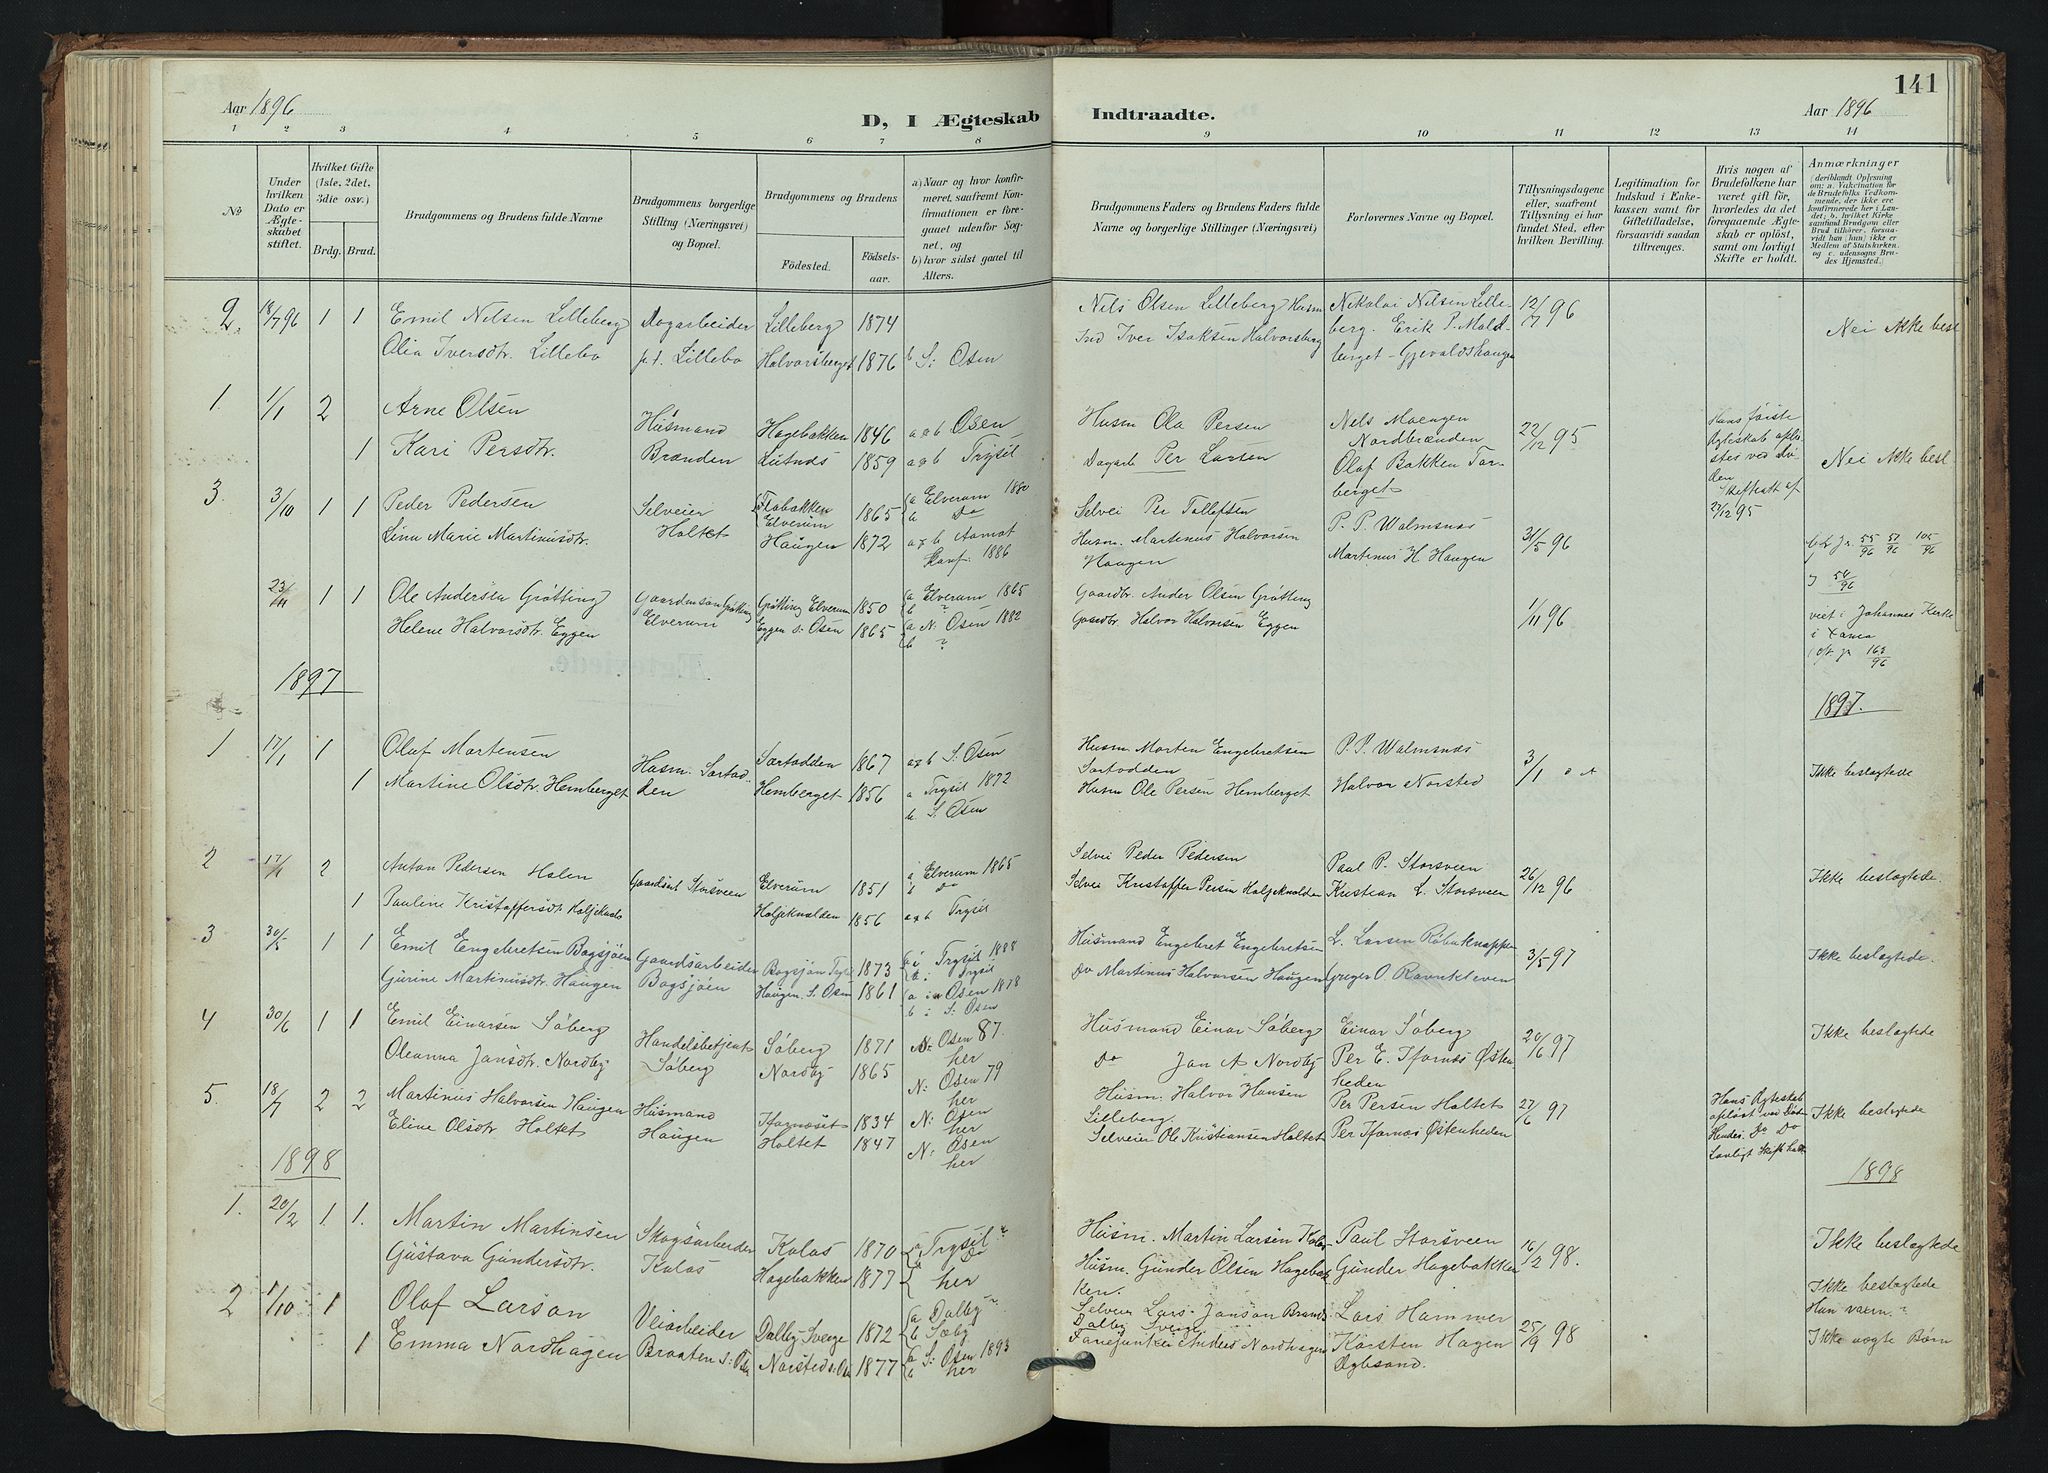 141
Aar 1896
D, I Ægteskab Indtraadte.
Aar 1896
1 2 3 4 5 6 7 8 9 10 11 12 13 14
No
Under hvilken Dato er Ægteskabet stiftet.
Hvilket Gifte (1ste, 2det, 3die osv.)
Brdg. Brud.
Brudgommens og Brudens fulde Navne
Brudgommens borgerlige Stilling (Næringsvei) og Bopæl.
Brudgommens og Brudens
Födested. Födselsaar.
a) Naar og hvor konfirmeret, saafremt Konfirmationen er foregaaet udenfor Sognet, og
b) hvor sidst gaaet til Alters.
Brudgommens Faders og Brudens Faders fulde Navne og borgerlige Stillinger (Næringsvei)
Forlovernes Navne og Bopæl.
Tillysningsdagene eller, saafremt Tillysning ei har fundet Sted, efter hvilken Bevilling.
Legitimation for Indskud i Enkekassen samt for Giftetilladelse, forsaavidt saadan tiltrænges.
Hvis nogen af Brudefolkene har været gift før, hvorledes da det foregaaende Ægteskab er oplöst, samt om lovligt Skifte er holdt.
Anmærkninger
(deriblandt Oplysning om: a. Vakcination for de Brudefolks Vedkommende, der ikke ere konfirmerede her i Landet; b. hvilket Kirkesamfund Brudgom eller Brud tilhörer, forsaavidt han (hun) ikke er Medlem af Statskirken, og c. udensogns Brudes Hjemsted.)
2. 18/7 96 1 1 Emil Nilsen Lilleberg Dagarbeider Lilleberg 1874 Nils Olsen Lilleberg Husm Nikolai Nilsen Lille- 12/7 96 Nei Ikke besl
Olia Iversdtr. Lillebo p.t. Lillebo Halvorsberget 1876 b S: Osen Ind Iver Isaksen Halvorsberg berg. Erik P. Mold-
berget - Gjevaldshaugen
1. 1/1 2 Arne Olsen Husmand Hagebakken 1846 a & b Osen Husm Ola Persen Nels Moengen 22/12 95 Hans første Ægteskab opløstes ved Døden
1 Kari Persdtr. Brænden Lutnæs 1859 a & b Trysil Dagarb Per Larsen Nordbrænden Nei Ikke besl.
Olaf Bakken Tør-
berget Skifteatt af 27/12 95
3. 3/10 1 1 Peder Pedersen Selveier Flobakken Elverum 1865 a Elverum 1880 b Do Selvei Per Tollefsen P. P. Walmsnæs 31/5 96
Lina Marie Martinusdtr. Holtet Haugen 1872 a & b Aamot Konf. 1886 Husm. Martinus Halvorsen Haugen Martinus H Haugen
55/96 57/96 105/96
54/96
23/11 1 1 Ole Andersen Grötting Gaardmand Grötting Elverum Grötting Elverum 1850 a Elverum 1865 b " Gaardbr. Ander Olsen Grötting 1/11 96
Helene Halvorsdtr. Eggen Eggen S: Osen 1865 a N: Osen 1882 b " Gaardbr Halvor Halvorsen Eggen
viet i Johannes Kirke
i Xania
163/96
1897 1897.
1 17/1 1 Olaf Martensen Husm. Sørtodden Sørtodden 1867 a & b S. Osen Husm Morten Engebretsen Sørtodden P. P. Walmsnæs 3/1 Ikke beslægtede
1 Martine Olsdtr. Hemberget Hemberget 1856 a Trysil 1872 b. S. Osen Husm Ole Persen Hemberget Halvor Norsted
2 17/4 2 Anton Pedersen Holen Gaardsarb Storsveen Elverum 1851 a Elverum 1865 b Do Selvei Peder Pedersen Paul P. Storsveen 26/12 96 Ikke beslægtede.
1 Pauline Kristoffersdtr Holjeknolds Holjeknolden 1856 a & b Trysil Selvei Kristoffer Persen Holjeknolden Kristian L. Storsveen
3 30/5 1 1 Emil Engebretsen Bogsjøen Gaardsarbeider Bogsjøn Trys 1873 a i Trysil 1888 b. i Trysil Husmand Engebret Engebretsen L. Larsen Röbæknappen 3/5 97 Ikke beslægtede.
Gurine Martinusdtr. Haugen Bogsjøen Haugen S: Osen 1861 a i N Osen 1878 b i S: Osen Do Martinus Halvorsen Haugen Greger O. Ravnkleven
4 30/6 1 1 Emil Einarsen Söberg Handelsbetjent Söberg 1871 N: Osen 87. her Husmand Einar Söberg Einar Söberg 20/6 97 Ikke beslægtede
Oleanna Jansdtr. Nordby Söberg Nordby 1865 N: Osen 79 her Do Jan A Nordby Per E. Ifarnæs Østenheden
5. 18/7 2 2 Martinus Halvorsen Haugen Husmand Ifarnæset 1834 N: Osen her Husm. Halvor Hansen Lilleberg. Per Persen Holtet 27/6 97 Hans Ægteskab opløst ved Døden Hendes Do Do Lovligt Skifte holdt Ikke beslægtede
Eline Olsdtr Holtet Haugen Holtet 1847 N: Osen her Selveier Ole Kristiansen Holtet Per Ifarnæs Østenheden
1898 1898
1. 20/2 1. 1. Martin Martinsen Skogsarbeider Kolos 1870 a Trysil Do Husm. Martin Larsen Kolos Paul Storsveen 16/2 98. Ikke beslægtede
Gustava Gundersdtr. Kolos Hagebakken 1877 her Husm. Gunder Olsen Hagebakken. Gunder Hagebakken
2 1/10 1 Olaf Larson Veiarbeider Dalby Sverge 1872 a Dalby b Sæby Selveier Lars Janson Brands Dalby Sverig Lars Hammer 25/9 98 Ikke beslægtede
1 Emma Nordhagen Braaten S: Osen Norsted S: Osen 1877 a S: Osen 1893 b her Fanejunker Anders Nordhagen Karsten Hagen Ægbsand. Han vaccn.
Ikke ægte Børn